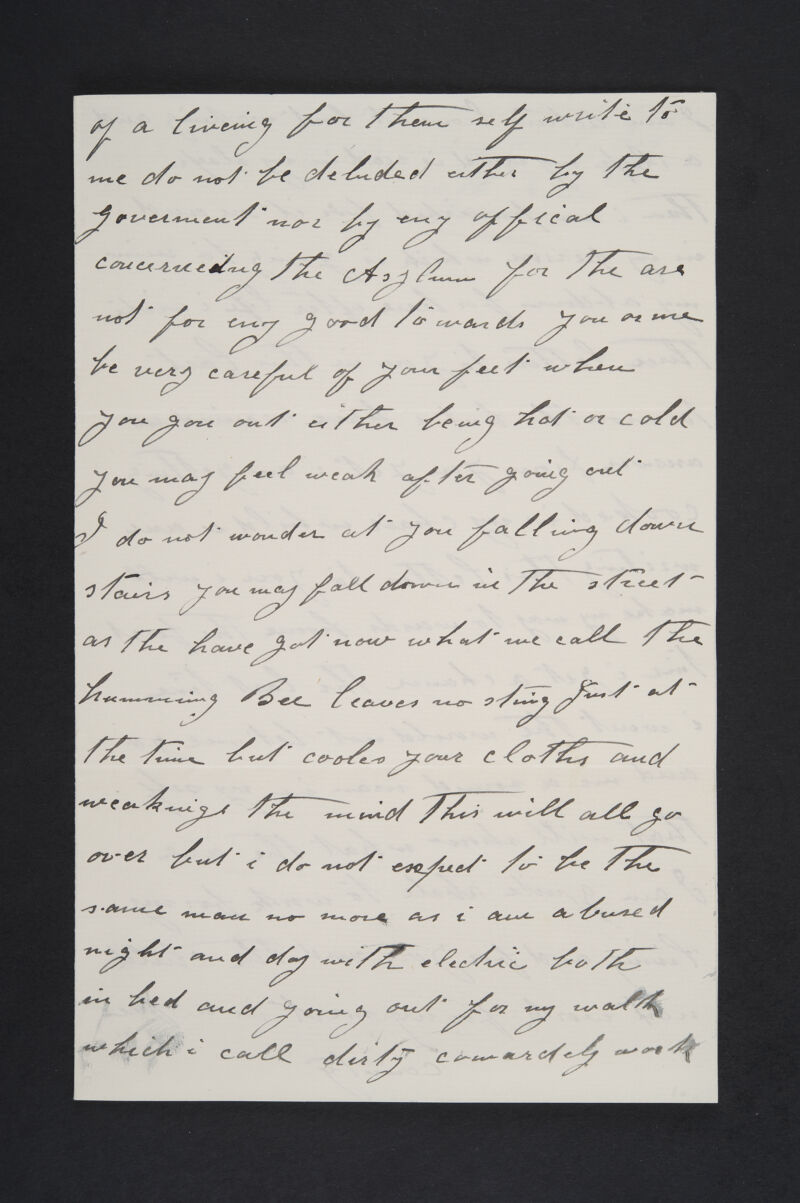 of a liveing for them self write to
me do not be deluded either by the
goverment nor by eny offical
concerneding the Asylum for the are
not for eny good towards you or me
be very careful of your feet when
you goii out either being hot or cold
you may feel weak after going out
I do not wonder at you falling down
stairs you may fall down in the street
as the have got now what we call the
humming Bee leaves no sting Just at
the time but cooles your cloths and
weaknigs the mind This will all go
over but i do not exspect to be the
same man no more as i am abused
night and day with electric both
in bed and going out for my walk
which i call dirty cowardely work